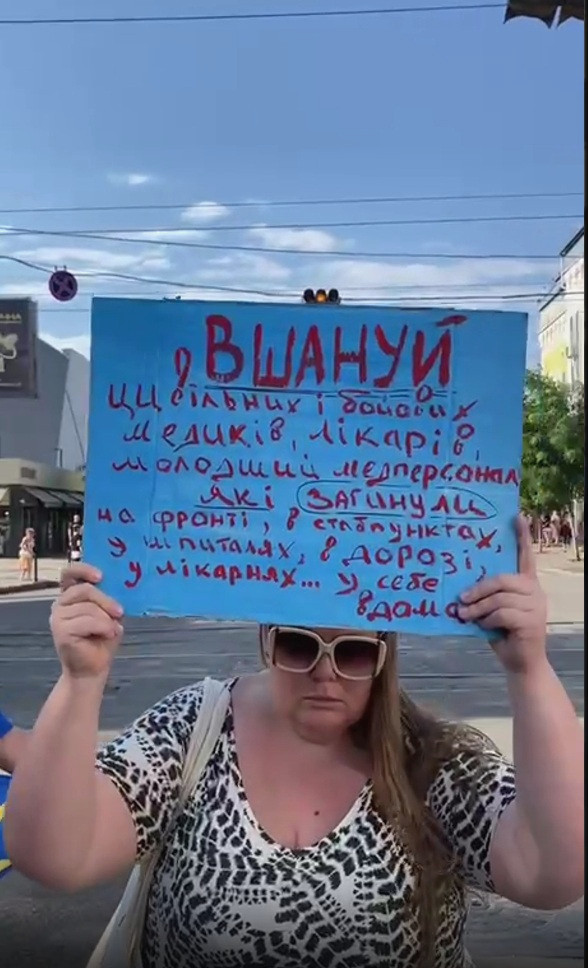 ВШАНУЙ
цивільних і бойових
медиків, лікарів,
молодший медперсонал
які загинули
на фронті, в стабпунктах,
у шпиталях, в дорозі,
у лікарнях... у себе
вдома